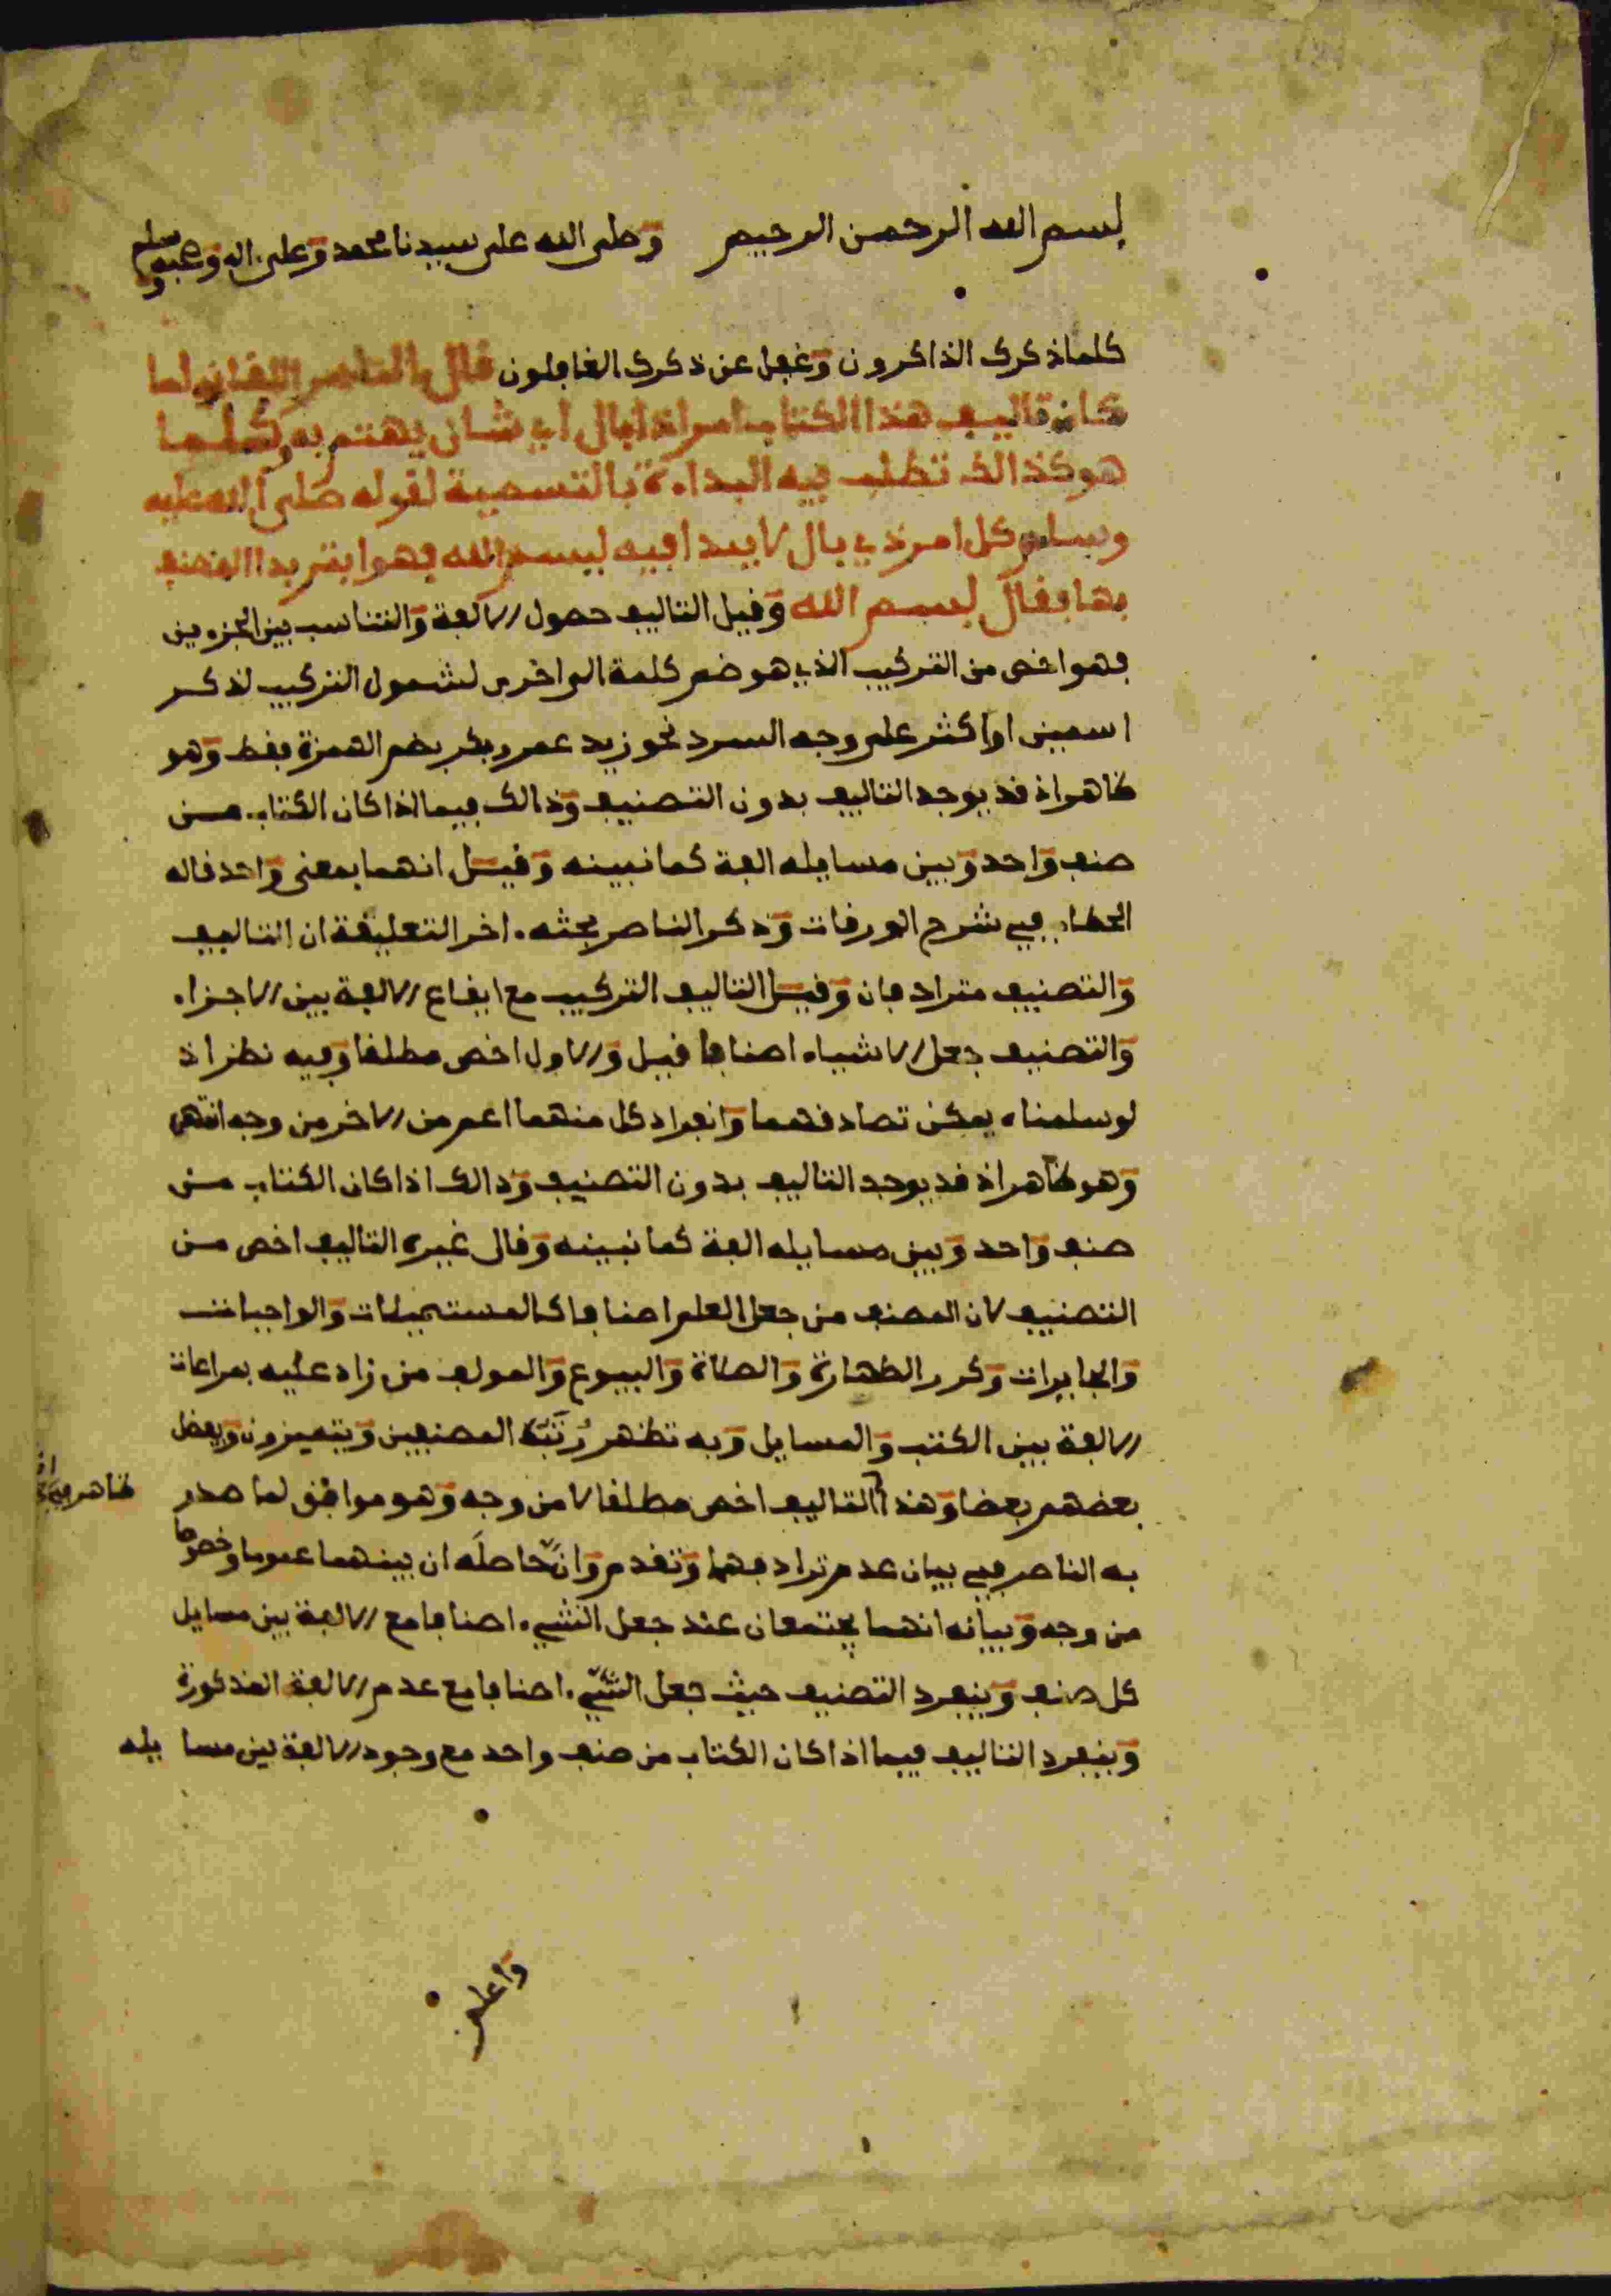 بسم الله الرحمن الرحيم وصلى الله على سيدنا محمد وعلى اله وصحبه وسلم
كلما ذكرك الذاكرون وغفل عن ذكرك الغافلون قال الناصر اللقاني لما
كان تاليف هذا الكتاب امرا ذا بال اي شان يهتم به وكلما
هو كذالك تطلب فيه البداءة بالتسمية لقوله صلى الله عليه
وسلم كل امر ذي بال لا يبدا فيه ببسم الله فهو ابتر بدا المصنف
بها فقال بسم الله وقيل التاليف حصول الالفة والتناسب بين الجزءين
فهو اخص من التركيب الذي هو ضم كلمة الى اخرى لشمول التركيب لذكر
اسمين او اكثر على وجه السرد نحو زيد عمر بكر بضم الهمزة فقط وهو
ظاهر اذ قد يوجد التاليف بدون التصنيف وذالك فيما اذا كان الكتاب من
صنف واحد وبين مسايله الفة كما نبينه وقيل انهما بمعنى واحد قاله
الحطاب في شرح الورقات وذكر الناصر بحثه اخر التعليقة ان التاليف
والتصنيف مترادفان وقيل التاليف التركيب مع ايقاع الالفة بين الاجزاء
والتصنيف جعل الاشياء اصنافا قيل والاول اخص مطلقا وفيه نظر اذ
لو سلمناه يمكن تصادقهما وانفراد كل منهما اعم من الاخر من وجه انتهى
وهو ظاهر اذ قد يوجد التاليف بدون التصنيف وذالك اذا كان الكتاب من
صنف واحد وبين مسايله الفة كما نبينه وقال غيره التاليف اخص من
التصنيف لان المصنف من جعل العلم اصنافا كالمستحيلات والواجبات
والجايزات وكرر الطهارة والصلاة والبيوع والمولف من زاد عليه بمراعات
الالفة بين الكتب والمسايل وبه تظهر رتبة المصنفين ويتميزون ويفضل
بعضهم بعضا وهذا التاليف اخص مطلقا لا من وجه وهو موافق لما صدر
ظاهر في
به الناصر في بيان عدم ترادفهما وتقدم وان حاصله ان بينهما عموما وخصوصا
من وجه وبيانه انهما يجتمعان عند جعل الشيء اصنافا مع الالفة بين مسايل
كل صنف وينفرد التصنيف حيث جعل الشيء اصنافا مع عدم الالفة المذكورة
وينفرد التاليف فيما اذا كان الكتاب من صنف واحد مع وجود الالفة بين مسايله
واعلم